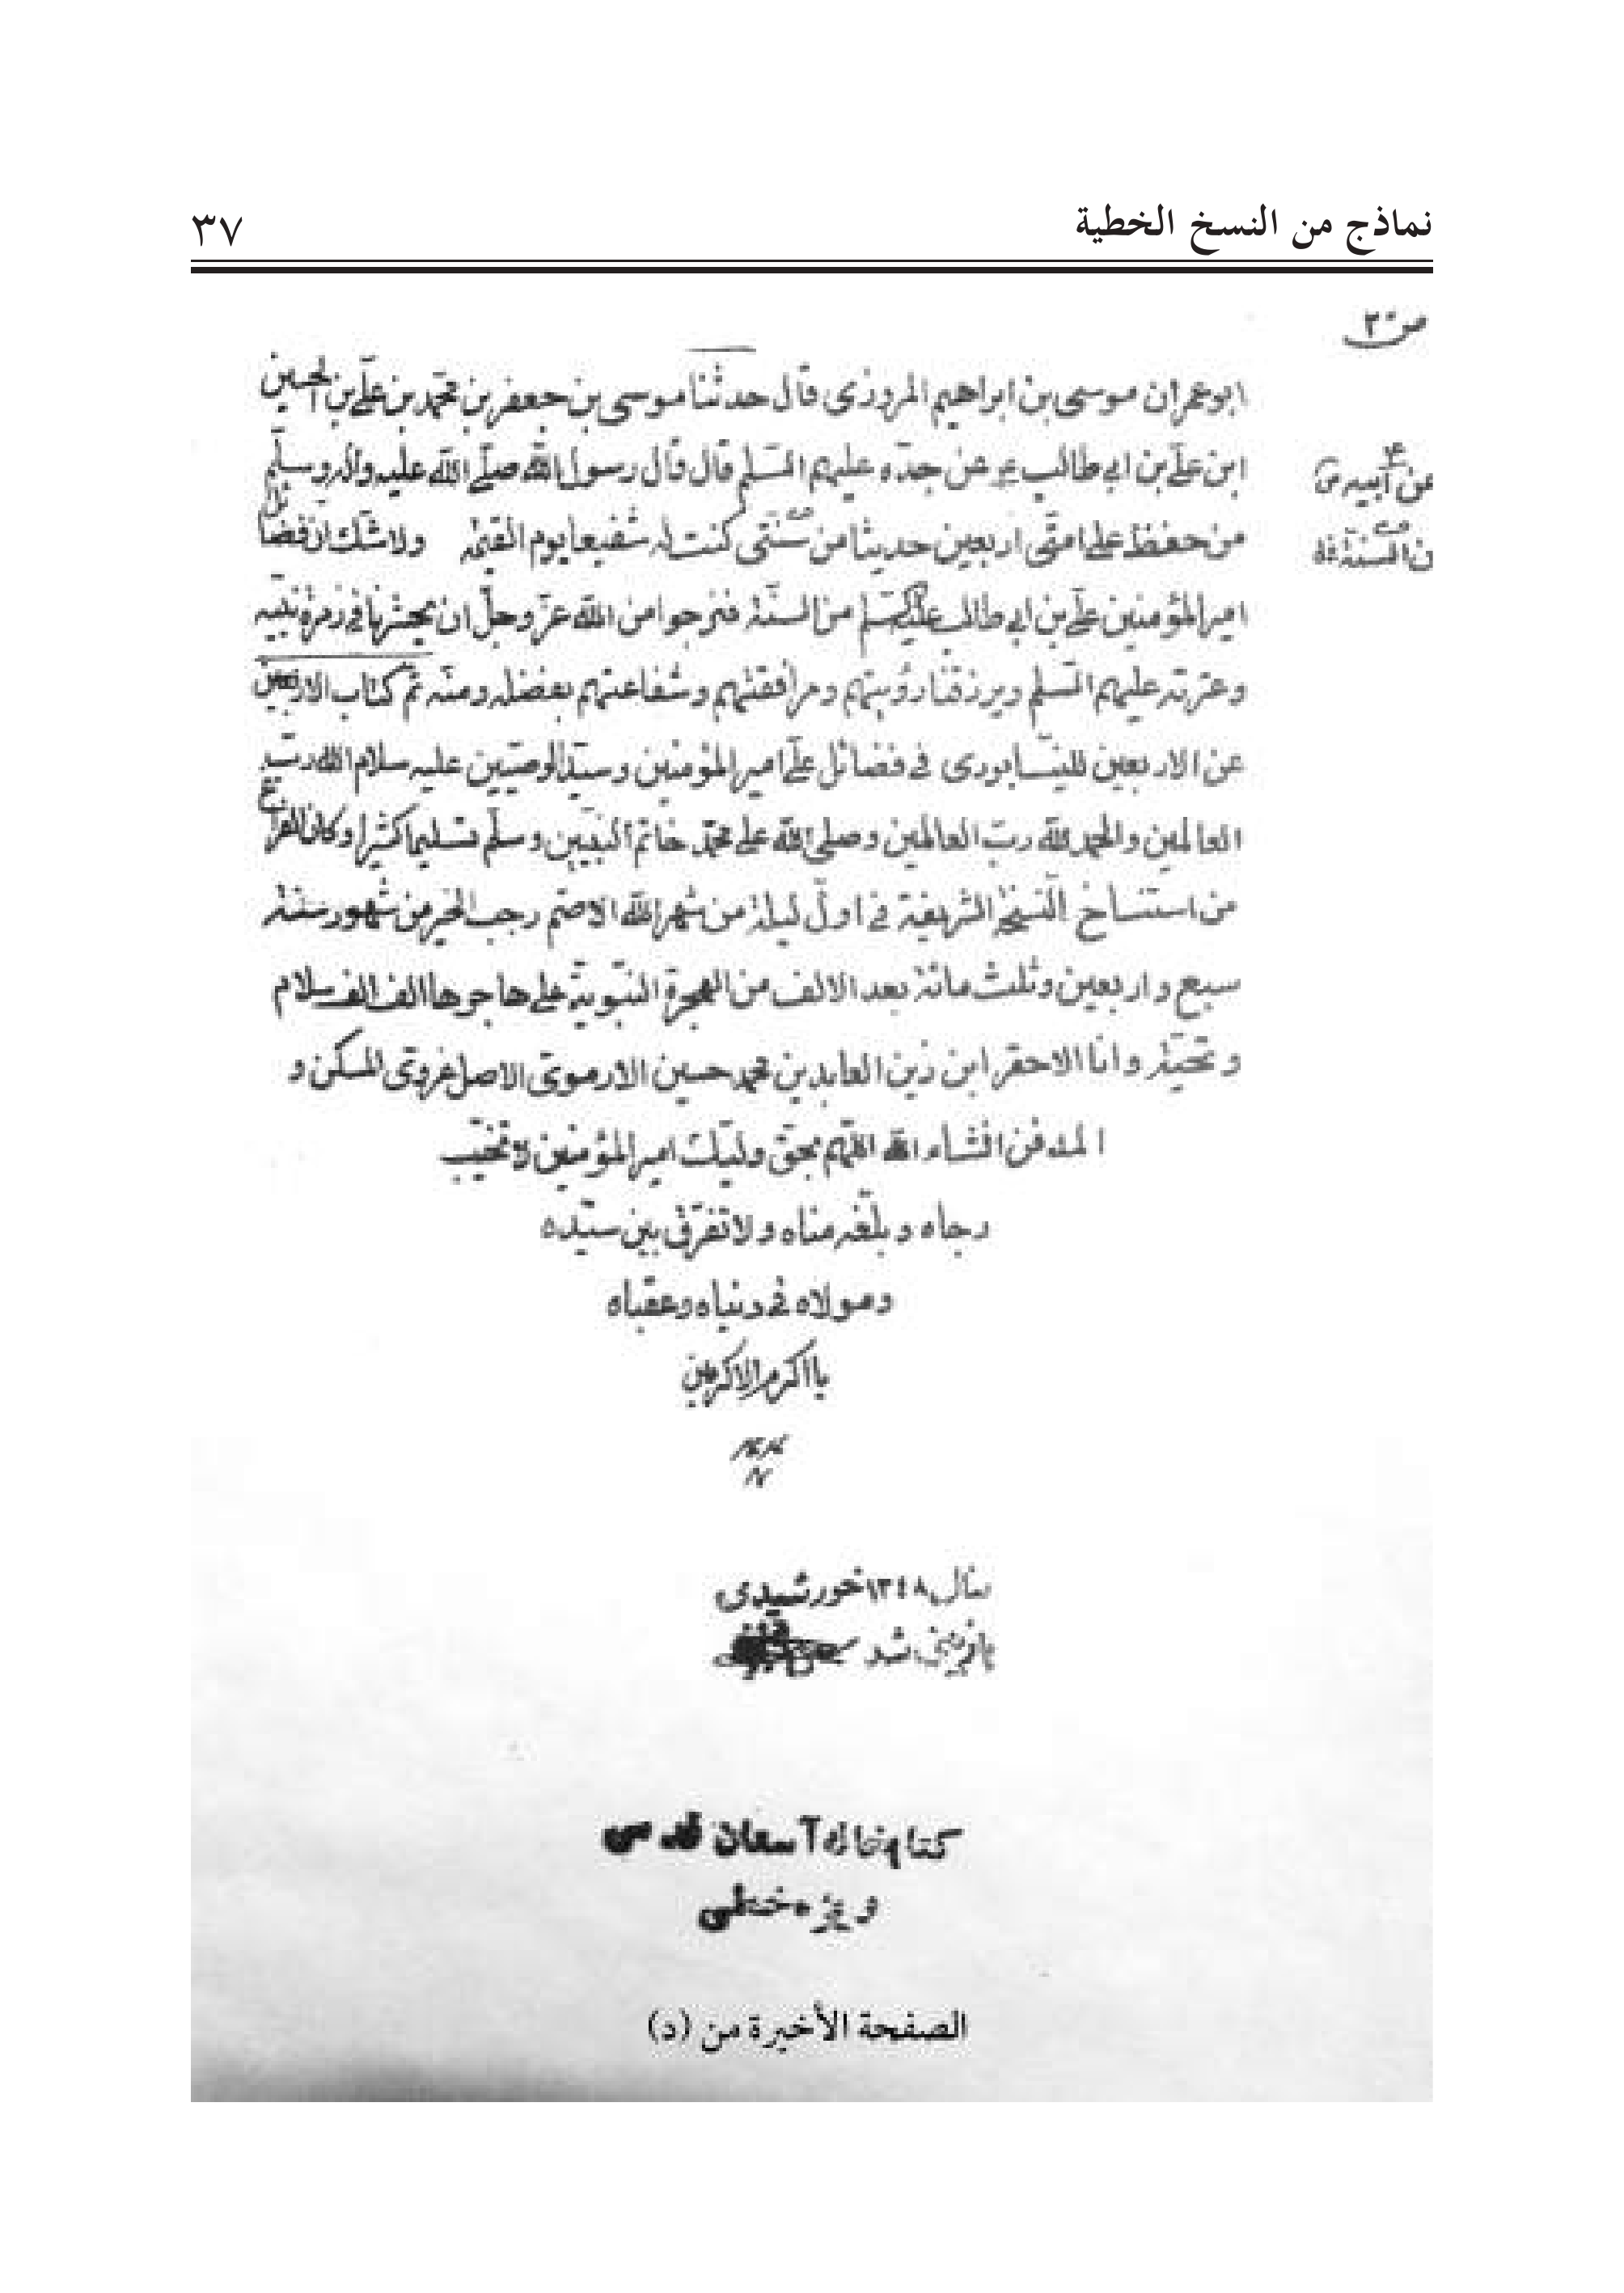 نماذج من النسخ الخطية ٣٧
ص ٣
ابوعمران موسى بن ابراهيم المروزى قال حدثنا موسى بن جعفر بن محمّد بن علىّ بن الحسين
ابن علىّ بن ابى طالب عن جدّه عليهم السّلم قال قال رسول اللّه صلّى اللّه عليه واله وسلّم
عن ابيه
من حفظ على امتى اربعين حديثا من سنّتى كنت له شفيعا يوم القيمة ولا شك انّ فضائل
ن السنة
امير المؤمنين علىّ بن ابى طالب من السنّة فنرجوا من اللّه عزّ وجلّ ان يحشرنا فى زمرة نبيّه
وعترته عليهم السّلم ويرزقنا رؤيتهم ومرافقتهم وشفاعتهم بفضله ومنّه تمّ كتاب الاربعين
عن الاربعين للنيسابورى فى فضائل علىّ امير المؤمنين وسيّد الوصيّين عليه سلام اللّه ربّ
العالمين والحمد للّه ربّ العالمين وصلى اللّه على محمّد خاتم النبيّين وسلّم تسليما كثيرا وكان الفراغ
من استنساخ النّسخة الشريفة فى اوّل ليلة من شهر اللّه الاصمّ رجب الخير من شهور سنة
سبع واربعين وثلث مائة بعد الالف من الهجرة النبّويّة على هاجرها الف الف سلام
وتحيّة وانا الاحقر ابن زين العابدين محمد حسين الارموىّ الاصل غروىّ المسكن و
المدفن انشاء اللّه اللّهم بحقّ وليّك امير المؤمنين لا تخيّب
رجاه وبلّغه مناه ولا تفرّق بين سيّده
ومولاه فى دنياه وعقباه
يا اكرم الاكرمين
سال ١٣٤٨ خورشيدى
بازبينى شد
كتابخانه آستان قدس
ويژه خطى
الصفحة الأخيرة من (د)